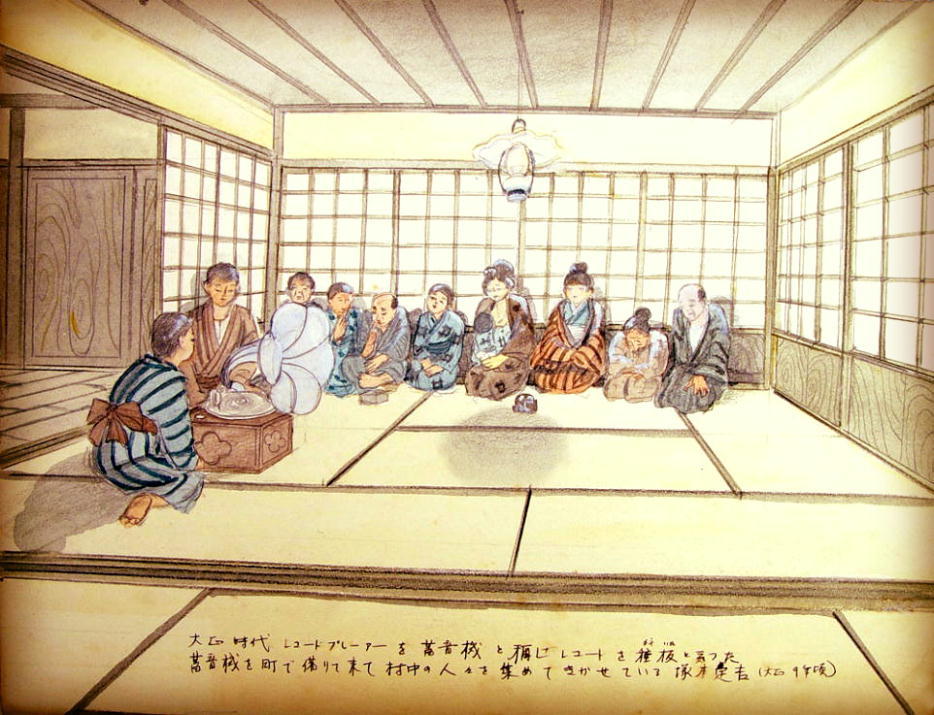 大正時代 レコードプレーアーを 蓄音機 と 稱し レコートを 種板と云つた
蓄音機を町で借りて来て 村中の人々を集めてきかせている 塚本 吉 (大正9年頃)